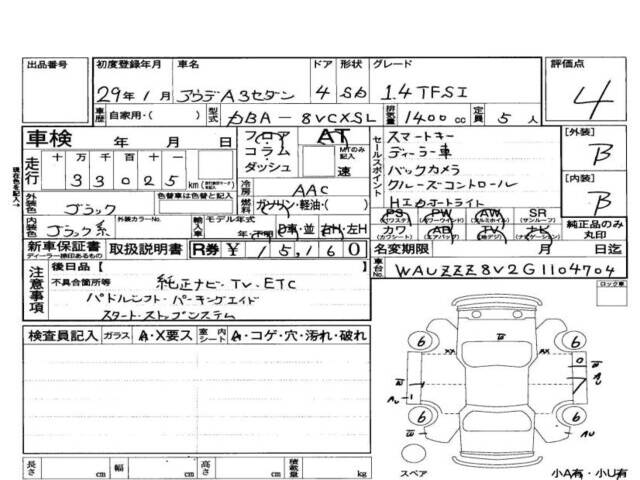 出品番号 初度登録年月 車名 ドア 形状 グレード 評価点
29年1月 アウディA3セダン 4 Sb 1.4 TFSI 4
車歴 自家用・( ) 型式 DBA-8VCXSL 排気量 1400cc 定員 5人
車検 年 月 日 フロア AT セールスポイント スマートキー 【外装】
走行 十万 万 千 百 十 コラム MTのみ記入 ディーラー車 B
33025 km ダッシュ 速 バックカメラ
現在色を記入→ 色替車は色替と記入 冷房 AAC クルーズコントロール 【内装】
外装色 ブラック 燃料 ガソリン・軽油・( ) B
内装色 ブラック系 外装カラーNo. 輸入車 モデル年式 PS (パワステ) PW (パワーウインド) AW (アルミホイル) SR (サンルーフ) 純正品のみ丸印
年・不明 D車・並 右H・左H カワ (カワシート) AB (エアバック) TV (地デジ) ナビ (ナビゲーション)
新車保証書 ディーラー捺印あるもの 取扱説明書 R券 ¥15,160 名変期限 月 日迄
注意事項 後日品【 】 車台No. WAUZZZ8V2G1104704
不具合箇所等 純正ナビ・TV・ETC ロック車
パドルシフト・パーキングエイド
スタート・ストップシステム
検査員記入 ガラス A・X要ス 室内 シート A・コゲ・穴・汚れ・破れ
6 6
W XX XX W
A U
AU 1
6 6
W AU
長さ cm 幅 cm 高さ cm 積載量 kg
スペア 小A有・小U有